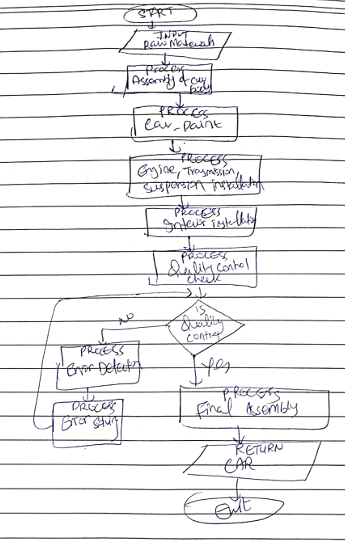 START
INPUT
Raw Materials
PROCESS
Assembly of car
body
PROCESS
Car Paint
PROCESS
Engine, Transmission,
suspension installation
PROCESS
Interior installation
PROCESS
Quality control
check
Is
Quality
control
NO
yes
PROCESS
Error Detection
PROCESS
Error
PROCESS
Final Assembly
RETURN
CAR